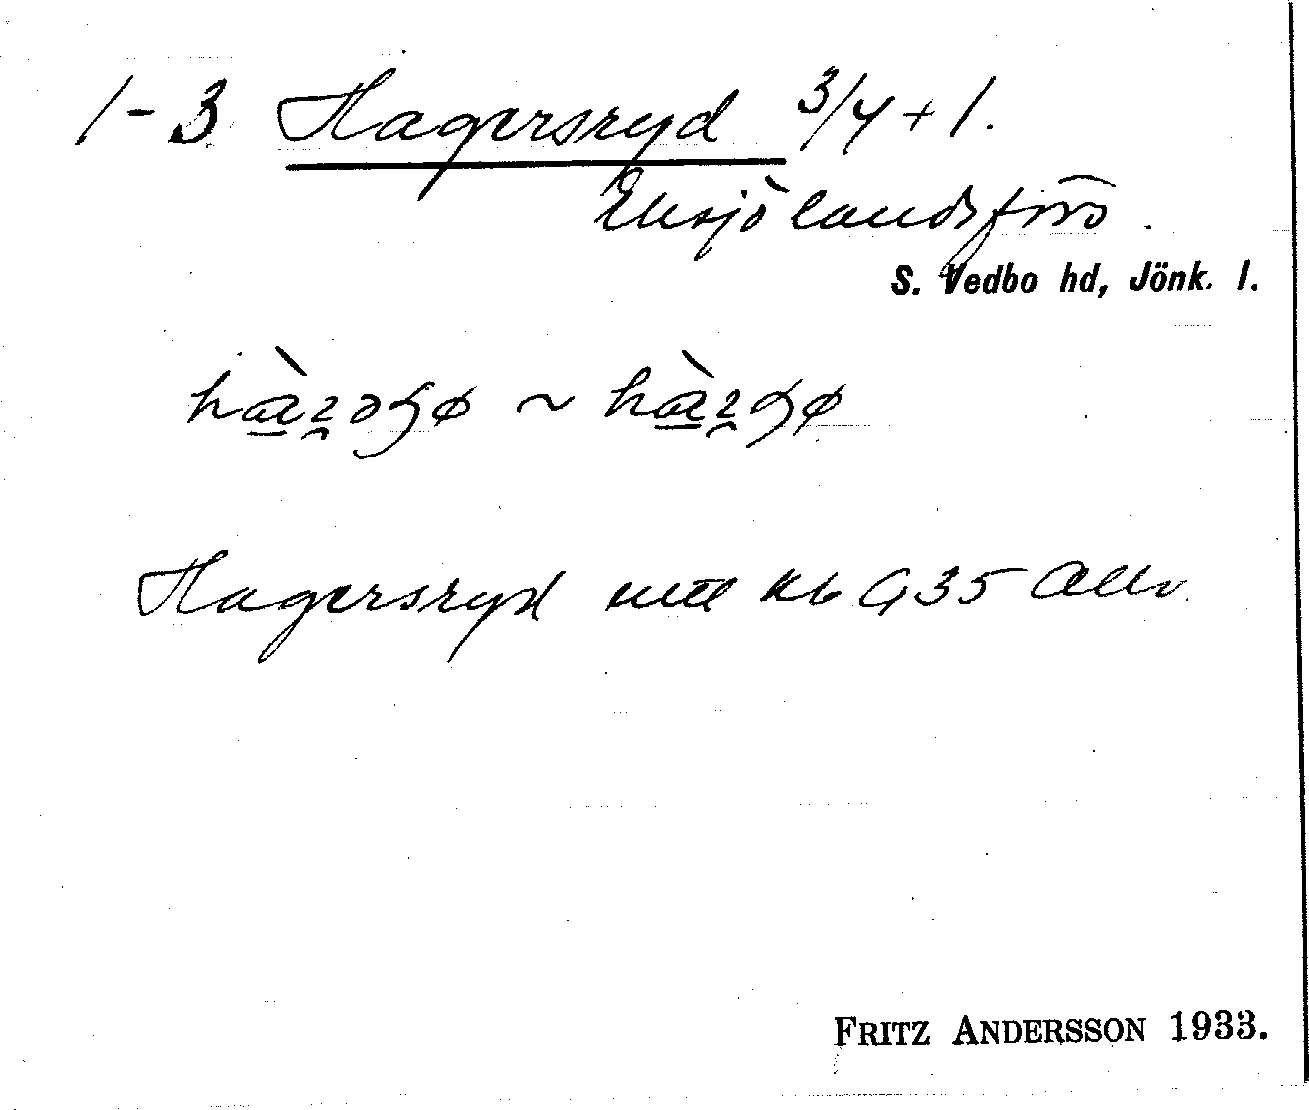 1-3 Hagersryd 3/4 + 1.
Eksjö landsförs.
S. Vedbo hd, Jönk. l.
~
Hagersryd uttl kb G35 Allv.
FRITZ ANDERSSON 1933.